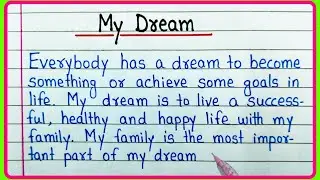 My Dream
Everybody has a dream to become
something or achieve some goals in
life. My dream is to live a success-
ful, healthy and happy life with my
family. My family is the most impor-
tant part of my dream